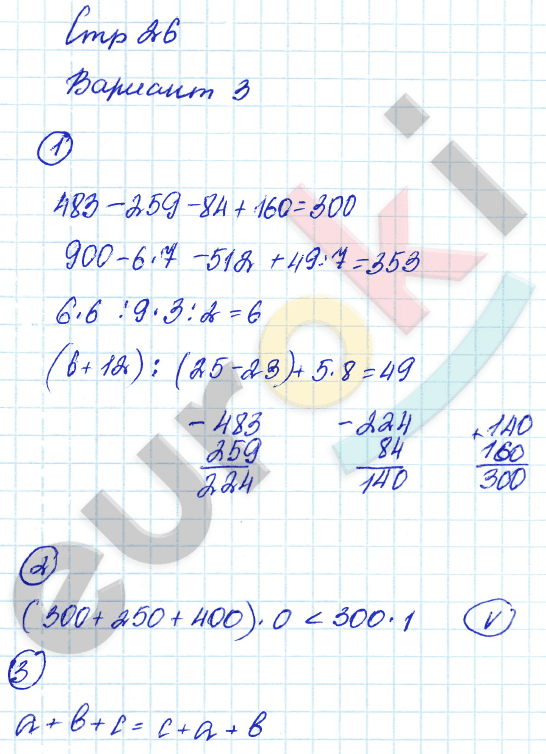 Стр 26
Вариант 3
1
483 - 259 - 84 + 160 = 300
900 - 6 · 7 - 512 + 49 : 7 = 353
6 · 6 : 9 · 3 : 2 = 6
(6 + 12) : (25 - 23) + 5 · 8 = 49
- 483 - 224 + 140
259 84 160
224 140 300
2
(300 + 250 + 400) · 0 < 300 · 1 V
3
a + b + c = c + a + b
euroki